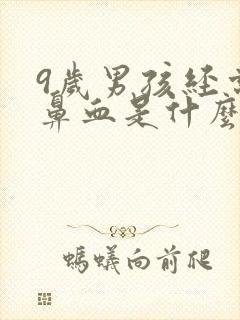 9歲男孩經常
鼻血是什麼
螞蟻向前爬